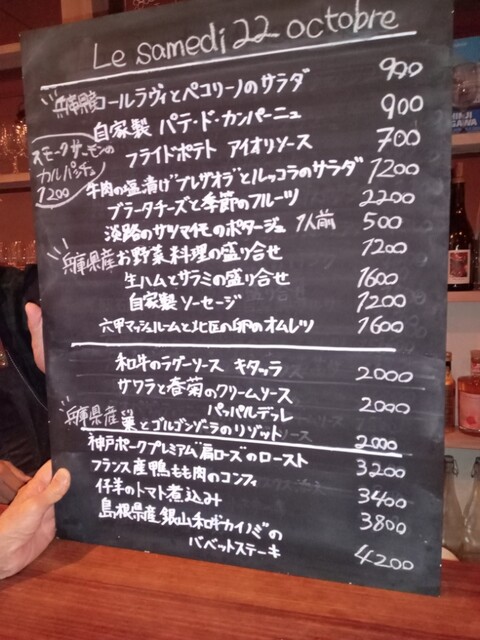 Le samedi 22 octobre
兵庫県産 コールラヴィとペコリーノのサラダ 900
自家製 パテ・ド・カンパーニュ 900
スモークサーモンの
カルパッチョ
1200
フライドポテト アイオリソース 700
牛肉の塩漬け"ブレザオラ"とルッコラのサラダ 1200
ブラータチーズと季節のフルーツ 2200
淡路のサツマイモのポタージュ 1人前 500
兵庫県産 お野菜料理の盛り合せ 1200
生ハムとサラミの盛り合せ 1600
自家製 ソーセージ 1200
六甲マッシュルームと北区の卵のオムレツ 1600
和牛のラグーソース キタッラ 2000
サワラと春菊のクリームソース
パッパルデッレ 2000
兵庫県産 栗とゴルゴンゾーラのリゾット 2000
神戸ポークプレミアム"肩ロース"のロースト 3200
フランス産鴨もも肉のコンフィ 3400
仔羊のトマト煮込み 3800
島根県産銀山和牛カイノミの
バベットステーキ 4200